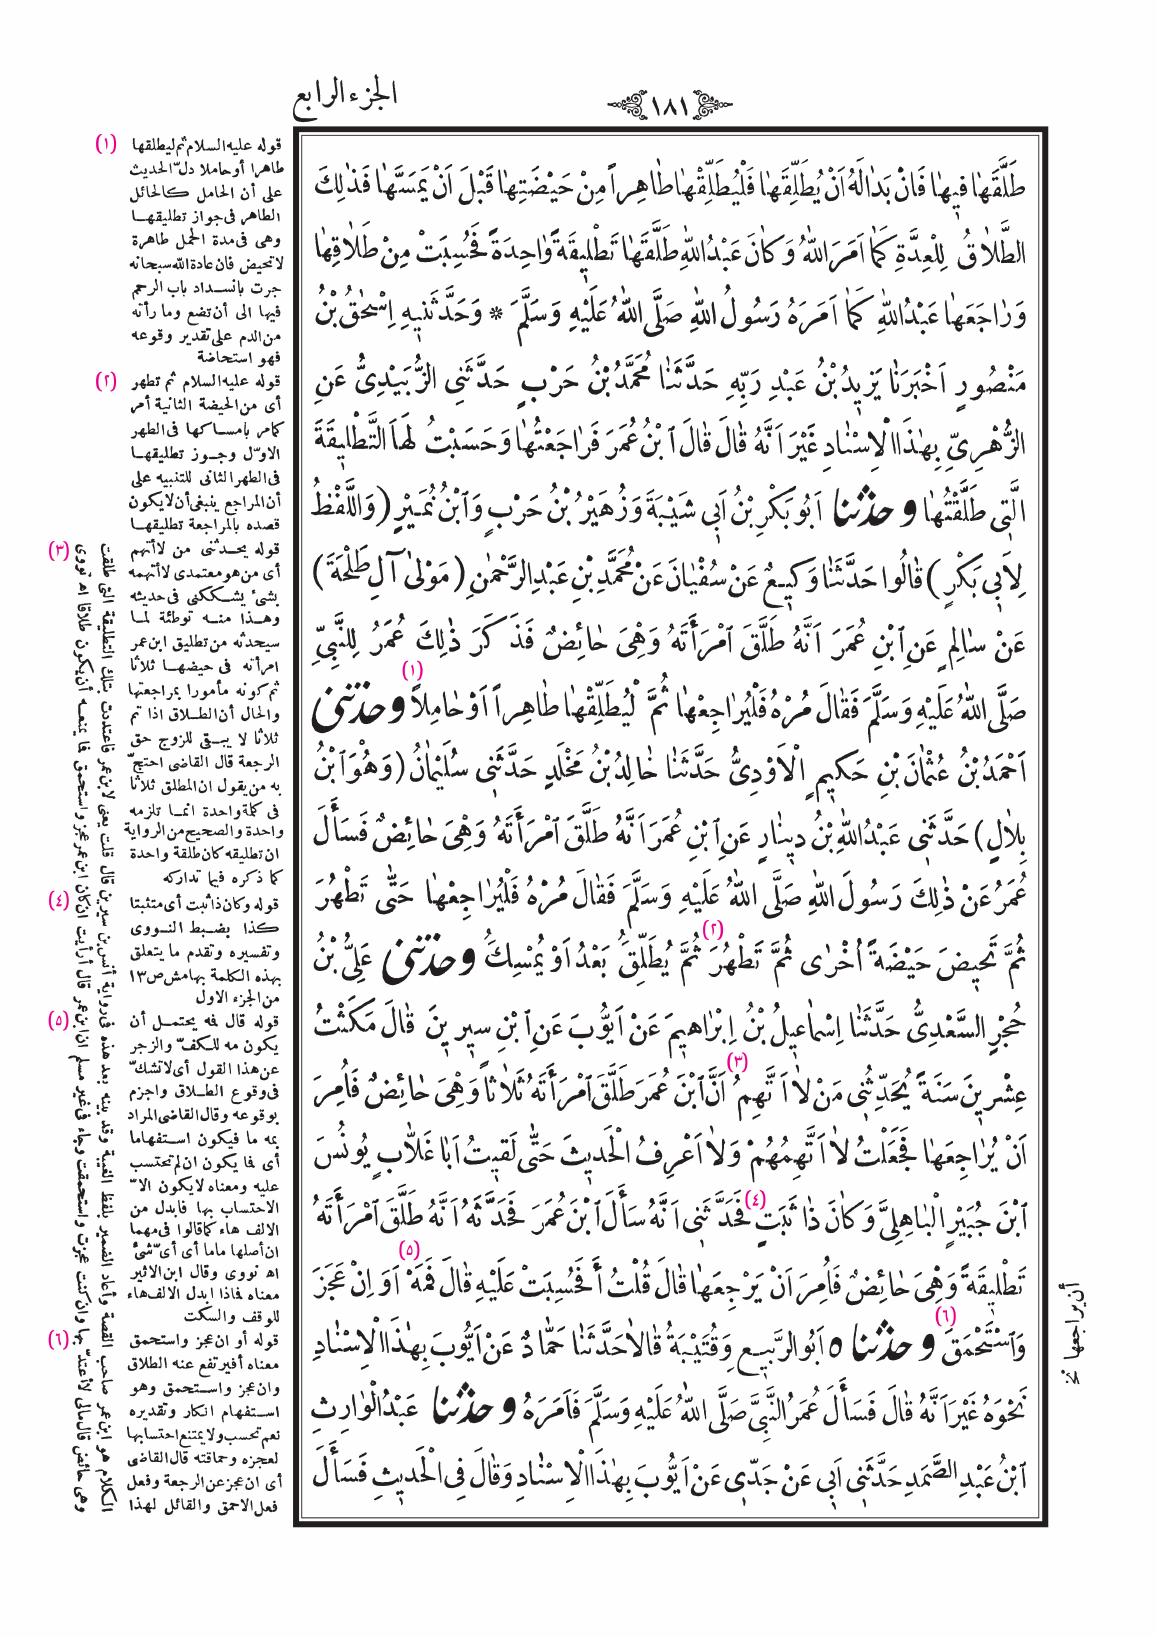 الجزء الرابع
١٨١
طَلَّقَهَا فِيهَا فَاِنْ بَدَالَهُ اَنْ يُطَلِّقَهَا فَلْيُطَلِّقْهَا طَاهِراً مِنْ حَيْضَتِهَا قَبْلَ اَنْ يَمَسَّهَا فَذٰلِكَ
الطَّلَاقُ لِلْعِدَّةِ كَمَا اَمَرَ اللّٰهُ وَكَانَ عَبْدُ اللّٰهِ طَلَّقَهَا تَطْلِيقَةً وَاحِدَةً فَحُسِبَتْ مِنْ طَلَاقِهَا
وَرَاجَعَهَا عَبْدُ اللّٰهِ كَمَا اَمَرَهُ رَسُولُ اللّٰهِ صَلَّى اللّٰهُ عَلَيْهِ وَسَلَّمَ * وَحَدَّثَنِيهِ اِسْحٰقُ بْنُ
مَنْصُورٍ اَخْبَرَنَا يَزِيدُ بْنُ عَبْدِ رَبِّهِ حَدَّثَنَا مُحَمَّدُ بْنُ حَرْبٍ حَدَّثَنِى الزُّبَيْدِىُّ عَنِ
الزُّهْرِىِّ بِهٰذَا الْاِسْنَادِ غَيْرَ اَنَّهُ قَالَ قَالَ ابْنُ عُمَرَ فَرَاجَعْتُهَا وَحَسَبْتُ لَهَا التَّطْلِيقَةَ
الَّتِى طَلَّقْتُهَا وحدثنا اَبُو بَكْرِ بْنُ اَبِى شَيْبَةَ وَزُهَيْرُ بْنُ حَرْبٍ وَابْنُ نُمَيْرٍ (وَاللَّفْظُ
لِاَبِى بَكْرٍ) قَالُوا حَدَّثَنَا وَكِيعٌ عَنْ سُفْيَانَ عَنْ مُحَمَّدِ بْنِ عَبْدِ الرَّحْمٰنِ (مَوْلىٰ آلِ طَلْحَةَ)
عَنْ سَالِمٍ عَنِ ابْنِ عُمَرَ اَنَّهُ طَلَّقَ امْرَأَتَهُ وَهْىَ حَائِضٌ فَذَكَرَ ذٰلِكَ عُمَرُ لِلنَّبِىِّ
صَلَّى اللّٰهُ عَلَيْهِ وَسَلَّمَ فَقَالَ مُرْهُ فَلْيُرَاجِعْهَا ثُمَّ لْيُطَلِّقْهَا طَاهِراً اَوْ حَامِلاً (١) وحدثنى
اَحْمَدُ بْنُ عُثْمَانَ بْنِ حَكِيمٍ الْاَوْدِىُّ حَدَّثَنَا خَالِدُ بْنُ مَخْلَدٍ حَدَّثَنِى سُلَيْمَانُ (وَهُوَ ابْنُ
بِلَالٍ) حَدَّثَنِى عَبْدُ اللّٰهِ بْنُ دِينَارٍ عَنِ ابْنِ عُمَرَ اَنَّهُ طَلَّقَ امْرَأَتَهُ وَهْىَ حَائِضٌ فَسَأَلَ
عُمَرُ عَنْ ذٰلِكَ رَسُولَ اللّٰهِ صَلَّى اللّٰهُ عَلَيْهِ وَسَلَّمَ فَقَالَ مُرْهُ فَلْيُرَاجِعْهَا حَتّٰى تَطْهُرَ
ثُمَّ تَحِيضَ حَيْضَةً اُخْرٰى ثُمَّ تَطْهُرَ (٢) ثُمَّ يُطَلِّقُ بَعْدُ اَوْ يُمْسِكُ وحدثنى عَلِىُّ بْنُ
حُجْرٍ السَّعْدِىُّ حَدَّثَنَا اِسْمَاعِيلُ بْنُ اِبْرَاهِيمَ عَنْ اَيُّوبَ عَنِ ابْنِ سِيرِينَ قَالَ مَكَثْتُ
عِشْرِينَ سَنَةً يُحَدِّثُنِى مَنْ لَا اَتَّهِمُ (٣) اَنَّ ابْنَ عُمَرَ طَلَّقَ امْرَأَتَهُ ثَلَاثاً وَهْىَ حَائِضٌ فَاُمِرَ
اَنْ يُرَاجِعَهَا فَجَعَلْتُ لَا اَتَّهِمُهُمْ وَلَا اَعْرِفُ الْحَدِيثَ حَتّٰى لَقِيتُ اَبَا غَلَّابٍ يُونُسَ
ابْنَ جُبَيْرٍ الْبَاهِلِىَّ وَكَانَ ذَا ثَبَتٍ (٤) فَحَدَّثَنِى اَنَّهُ سَأَلَ ابْنَ عُمَرَ فَحَدَّثَهُ اَنَّهُ طَلَّقَ امْرَأَتَهُ
تَطْلِيقَةً وَهْىَ حَائِضٌ فَاُمِرَ اَنْ يَرْجِعَهَا قَالَ قُلْتُ أَفَحُسِبَتْ عَلَيْهِ قَالَ فَمَهْ (٥) اَوَ اِنْ عَجَزَ
وَاسْتَحْمَقَ (٦) وحدثنا ٥ اَبُو الرَّبِيعِ وَقُتَيْبَةُ قَالَا حَدَّثَنَا حَمَّادٌ عَنْ اَيُّوبَ بِهٰذَا الْاِسْنَادِ
نَحْوَهُ غَيْرَ اَنَّهُ قَالَ فَسَأَلَ عُمَرُ النَّبِىَّ صَلَّى اللّٰهُ عَلَيْهِ وَسَلَّمَ فَاَمَرَهُ وحدثنا عَبْدُ الْوَارِثِ
ابْنُ عَبْدِ الصَّمَدِ حَدَّثَنِى اَبِى عَنْ جَدِّى عَنْ اَيُّوبَ بِهٰذَا الْاِسْنَادِ وَقَالَ فِى الْحَدِيثِ فَسَأَلَ
أن يراجعها نخ
(١) قوله عليه السلام ثم ليطلقها
طاهرا أو حاملا دلّ الحديث
على أن الحامل كالحائل
الطاهر فى جواز تطليقها
وهى فى مدة الحمل طاهرة
لا تحيض فان عادة الله سبحانه
جرت بانسداد باب الرحم
فيها الى أن تضع وما رأته
من الدم على تقدير وقوعه
فهو استحاضة
(٢) قوله عليه السلام ثم تطهر
أى من الحيضة الثانية أمر
كمامر بامساكها فى الطهر
الاوّل وجوز تطليقها
فى الطهر الثانى للتنبيه على
أن المراجع ينبغى أن لا يكون
قصده بالمراجعة تطليقها
(٣) قوله يحدثنى من لا أتهم
أى من هو معتمدى لا أتهمه
بشئ يشككنى فى حديثه
وهذا منه توطئة لما
سيحدثه من تطليق ابن عمر
امرأته فى حيضها ثلاثا
ثم كونه مأمورا بمراجعتها
والحال أن الطلاق اذا تم
ثلاثا لا يبقى للزوج حق
الرجعة قال القاضى احتجّ
به من يقول ان المطلق ثلاثا
فى كلمة واحدة انما تلزمه
واحدة والصحيح من الرواية
ان تطليقه كان طلقة واحدة
كما ذكره فيما تداركه
(٤) قوله وكان ذا ثبت أى متثبتا
كذا بضبط النووى
وتفسيره وتقدم ما يتعلق
بهذه الكلمة بهامش ص١٣
من الجزء الاول
(٥) قوله قال فمه يحتمل أن
يكون مه للكفّ والزجر
عن هذا القول أى لا تشكّ
فى وقوع الطلاق واجزم
بوقوعه وقال القاضى المراد
بمه ما فيكون استفهاما
أى فما يكون ان لم تحتسب
عليه ومعناه لا يكون الاّ
الاحتساب بها فابدل من
الالف هاء كما قالوا فى مهما
ان أصلها ماما أى أىّ شئ
اه نووى وقال ابن الاثير
معناه فماذا ابدل الالف هاء
للوقف والسكت
(٦) قوله أو ان عجز واستحمق
معناه أفيرتفع عنه الطلاق
وان عجز واستحمق وهو
استفهام انكار وتقديره
نعم تحسب ولا يمتنع احتسابها
لعجزه وحماقته قال القاضى
أى ان عجز عن الرجعة وفعل
فعل الاحمق والقائل لهذا
الكلام هو ابن عمر صاحب القصة وأعاد الضمير بلفظ الغيبة وقد بينه بعد هذه فى رواية أنس بن سيرين قال قلت يعنى لابن عمر فاعتددت بتلك التطليقة التى طلقت
وهى حائض قال مالى لا أعتدّ بها وان كنت عجزت واستحمقت وجاء فى غير مسلم ان ابن عمر قال أرأيت ان كان ابن عمر عجز واستحمق فما يمنعه أن يكون طلاقا اه نووى